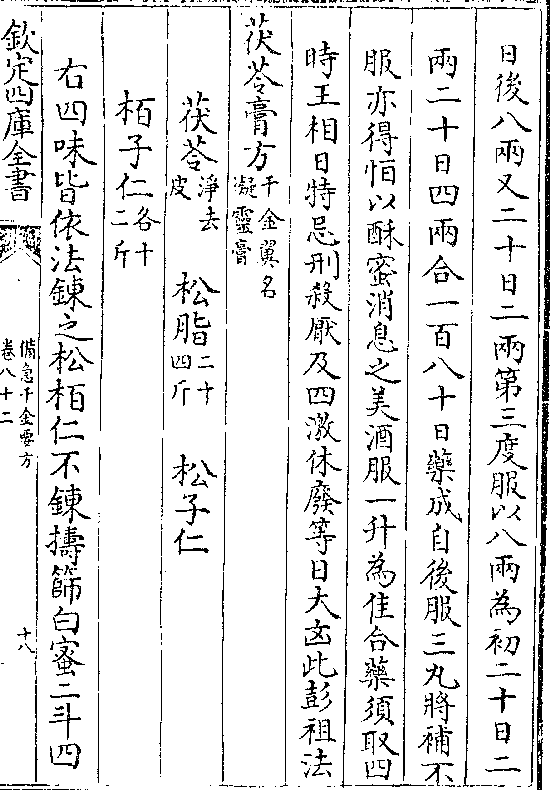 日後八兩又二十日二兩第三度服以八兩為初二十日二
兩二十日四兩合一百八十日藥成自後服三丸將補不
服亦得恒以酥蜜消息之美酒服一升為佳合藥須取四
時王相日特忌刑殺厭及四激休廢等日大凶此彭祖法
茯苓膏方千金翼名凝靈膏
茯苓淨去皮 松脂二十四斤 松子仁
柏子仁各十二斤
右四味皆依法鍊之松柏仁不鍊擣篩白蜜二斗四
欽定四庫全書
備急千金要方
卷八十二
十八